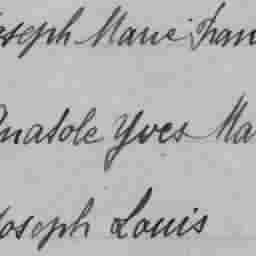 Joseph Marie Fran
Anatole Yves Ma
Joseph Louis